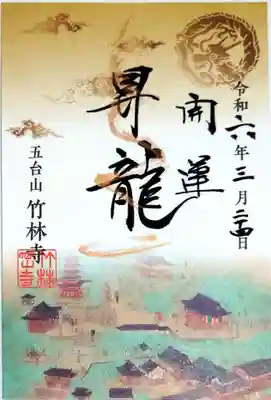 令和六年三月二十四日
開運
昇龍
五台山 竹林寺